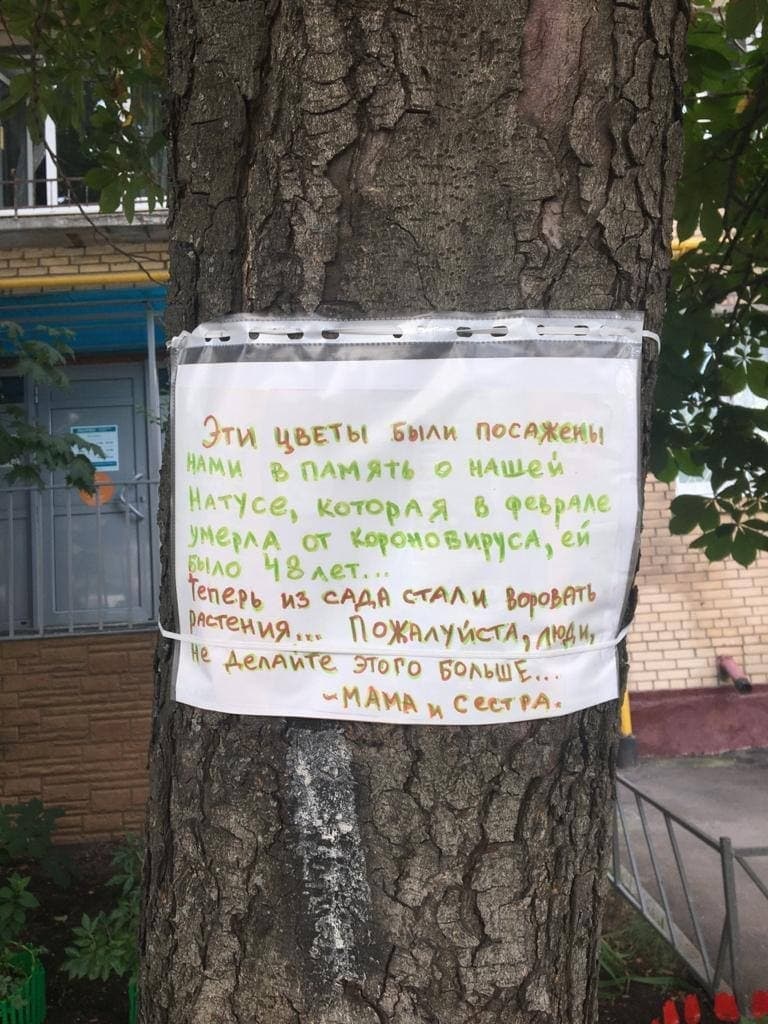 Эти цветы были посажены
нами в память о нашей
Натусе, которая в феврале
умерла от короновируса, ей
было 48 лет...
Теперь из сада стали воровать
растения... Пожалуйста, люди,
не делайте этого больше...
~ мама и сестра.